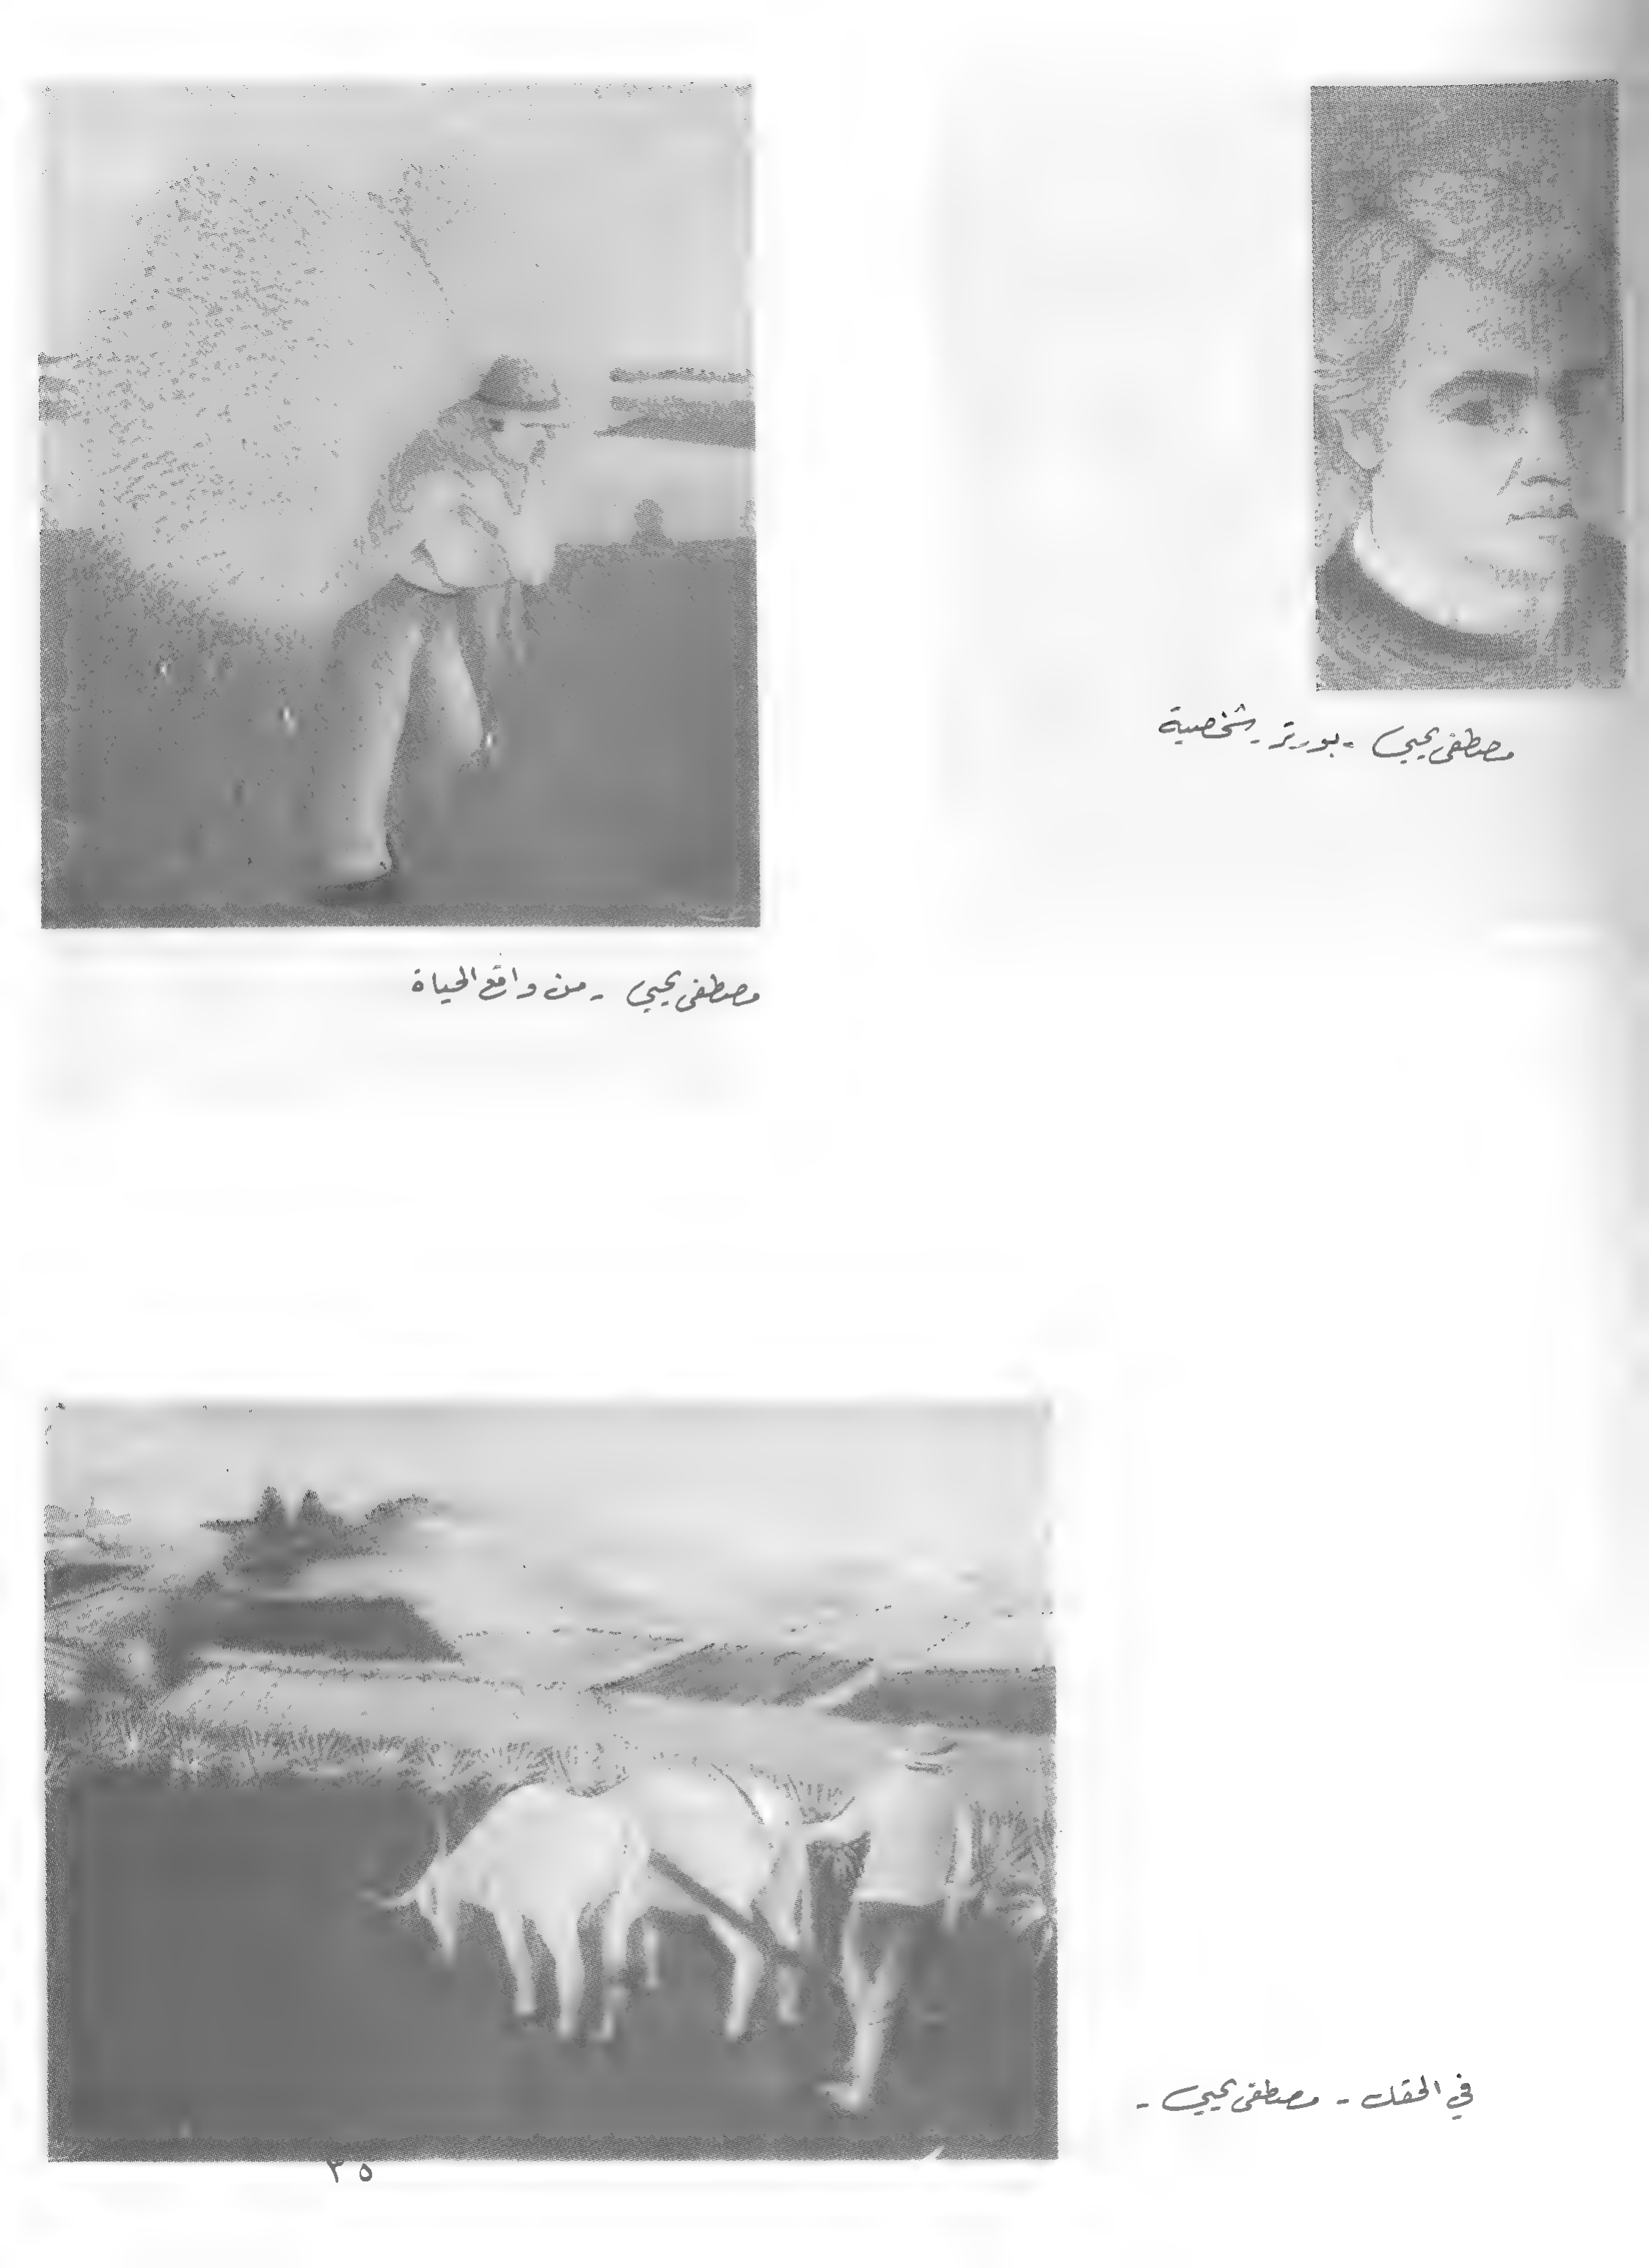 مصطفى يحيى - بورتر - شخصية
مصطفى يحيى - من واقع الحياة
في الحقل - مصطفى يحيى -
٣٥